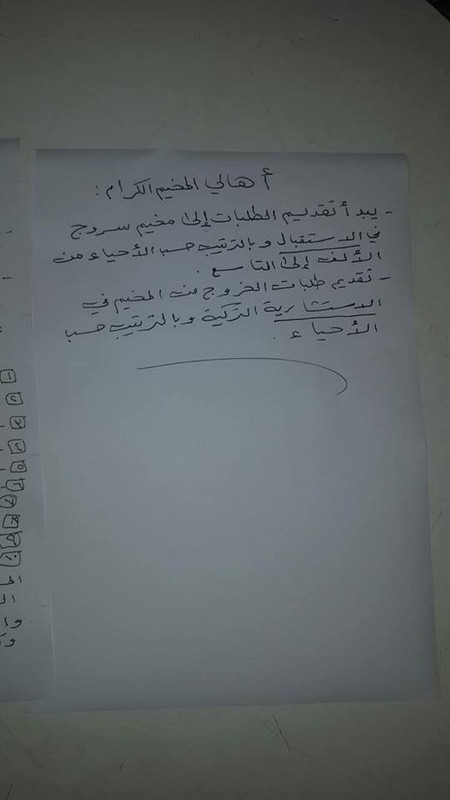 أهالي المخيم الكرام :
- يبدأ تقديم الطلبات إلى مخيم سروج
في الاستقبال وبالترتيب حسب الأحياء من
الألف إلى التاسع .
- تقديم طلبات الخروج من المخيم في
الاستشارية التركية وبالترتيب حسب
الأحياء .